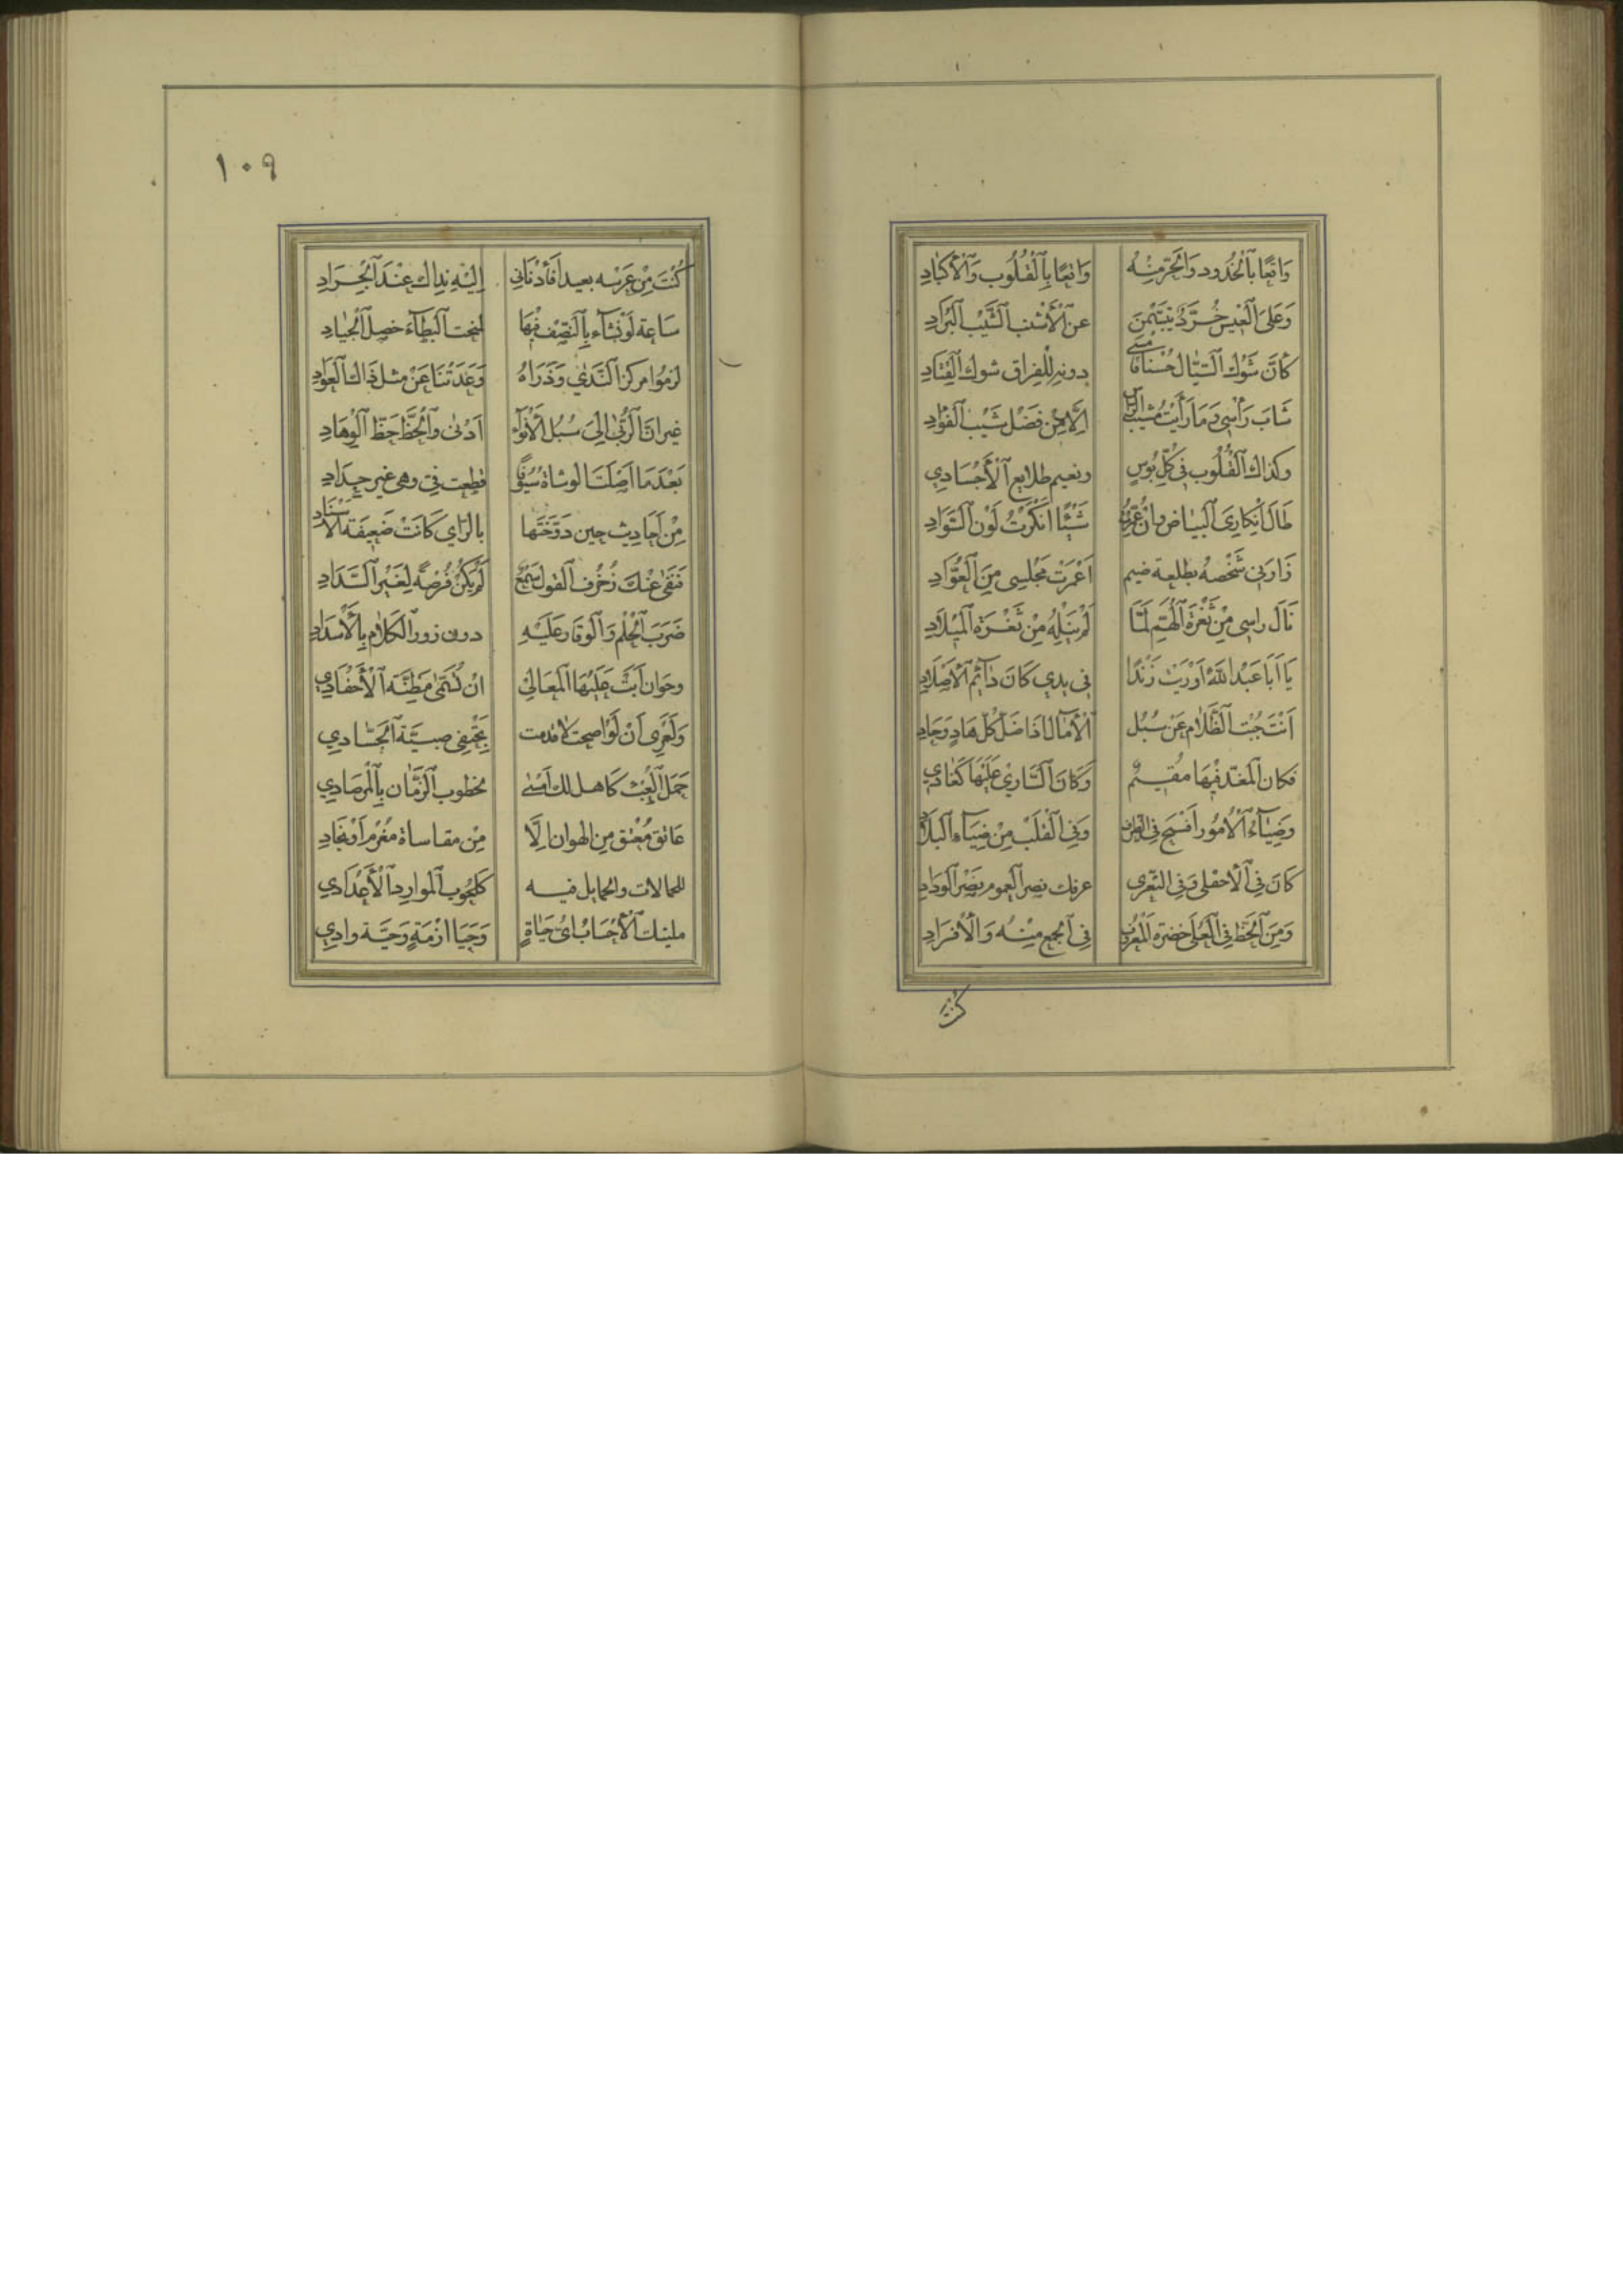 وَاقِعًا بِٱلْخُدُودِ وَٱلْحَرُّ مِنْهُ وَاقِعًا بِٱلْقُلُوبِ وَٱلْأَكْبَادِ
وَعَلَى ٱلْعِيسِ خُرَّدٌ يَتَبَسَّمْنَ عَنِ ٱلْأَشْنَبِ ٱلشَّتِيتِ ٱلْبَرَادِ
كَأَنَّ شَوْكَ ٱلسَّيَالِ حُسْنًا فَأَمْسَى دونه لِلْفِرَاقِ شوك ٱلْقَتَادِ
شَابَ رَأْسِي وَمَا رَأَيْتُ مَشِيبَ ٱلرَّأْسِ إِلَّا مِنْ فَضْلِ شَيْبِ ٱلْفُؤَادِ
وكذاك ٱلْقُلُوب فِي كُلِّ بُؤسٍ ونعيم طلايع ٱلْأَجْسَادِي
طَالَ إِنْكَارِيَ ٱلْبَيَاضَ وإنْ عُمِّرْتُ شَيْئًا أَنْكَرْتُ لَوْنَ ٱلسَّوَادِ
زَارَنِي شَخْصُهُ بطلعة ضيم أَعْمَرَتْ مَجْلِسِي مِنَ ٱلْعُوَّادِ
نَالَ راسي مِنْ ثُغْرَةِ ٱلْهَمِّ لَمَّا لَمْ يَنَلْهُ مِنْ ثُغْرَةِ ٱلْمِيلَادِ
يَا أَبَا عَبْدِ اللهِ أَوْرَيْتَ زَنْدًا فِي يدي كَانَ دَائِمَ ٱلْأَصْلَادِ
أَنْتَ جُبْتَ ٱلظَّلَامَ عَنْ سُبُلِ ٱلْآمَالِ إِذَا ضَلَّ كُلُّ هَادٍ وَحَادِ
فكان ٱلْمُغِذَّ فِيهَا مُقِيمٌ وَكَانَ ٱلسَّارِيْ عَلَيْهَا كَغَادِي
وَضِيَاءُ ٱلْأُمُورِ أَفْسَحُ فِي الطرف وَفِي ٱلْقَلْبِ مِنْ ضِيَاءِ ٱلْبِلَادِ
كَانَ فِي ٱلْأَجْفَلَى وَفِي النَّقَرَى عرفك نضر ٱلْعموم نَضْرَ ٱلْوِدَادِ
وَمِنَ ٱلْحَظِّ فِي ٱلْعُلَى خُضْرَةُ ٱلْمَعْرُوفِ فِي ٱلْجَمْعِ مِنْهُ وَٱلْأَفْرَادِ
كُنْتَ
١٠٩
كُنْتَ مِنْ غَرْسِه بعيدا فَأَدْنَانِي إِلَيْهِ نداك عِنْدَ ٱلْجِرَادِ
سَاعَة لَوْ نَشَاء بِٱلنّصْفِ فِيهَا لمنحت ٱلْبِطَاءَ خصل ٱلْجِيَادِ
لزمُوا مركز ٱلنَّدَى وَذَرَاهُ وَعَدَتْنَا عَنْ مثل ذَاكَ ٱلْعَوَادِي
غير أنَّ ٱلرُّبَى إِلَى سُبُلِ ٱلْأَنْوَاء أَدْنَى وَٱلْحَظُّ حَظُّ ٱلْوِهَادِ
بَعْدَمَا أَصْلَتَ ٱلوشاة سُيُوفًا قطعت فِيّ وهي غير حِدَادِ
مِنْ أَحَادِيثَ حِينَ دَوَّخْتَهَا بالرَّاي كَانَتْ ضَعِيفَةَ ٱلْإِسْنَادِ
فَنَفَى عَنْكَ زُخْرُفَ ٱلْقَوْلِ سَمْعٌ لَمْ يَكُنْ فُرْصَةً لِغَيْرِ ٱلسَّدَادِ
ضَرَبَ ٱلْحِلْمُ وَٱلْوَقَارُ عَلَيْهِ دون زور ٱلْكَلَامِ بِٱلْأَسْدَادِ
وحوان أَبَتْ عَلَيْهَا ٱلْمَعَالِي أنْ تُسَمَّى مَطِيَّةَ ٱلْأَحْقَادِي
وَلَعَمْرِي أَنْ لَوْ أصحت لَأَقْدَمت بِحَتْفِي ضئيَّة ٱلْحُسَّادِي
حَمَلَ ٱلْعِبْءَ كَاهل لك أَمْسَى لخطوب ٱلزَّمَان بِٱلْمِرْصَادِي
عَاتِق مُعْتق مِن الهوان إِلَّا مِنْ مقاساة مَغْرَمٍ أَوْ نِجَادِ
للحمالات والحمايل فيه كَلُحُوبِ ٱلْمَوَارِدِ ٱلْأَعْدَادِي
مليتك ٱلْأَحْسَابُ أَيُّ حَيَاةٍ وَحَيَا أَزْمَةٍ وَحَيَّة وادِي